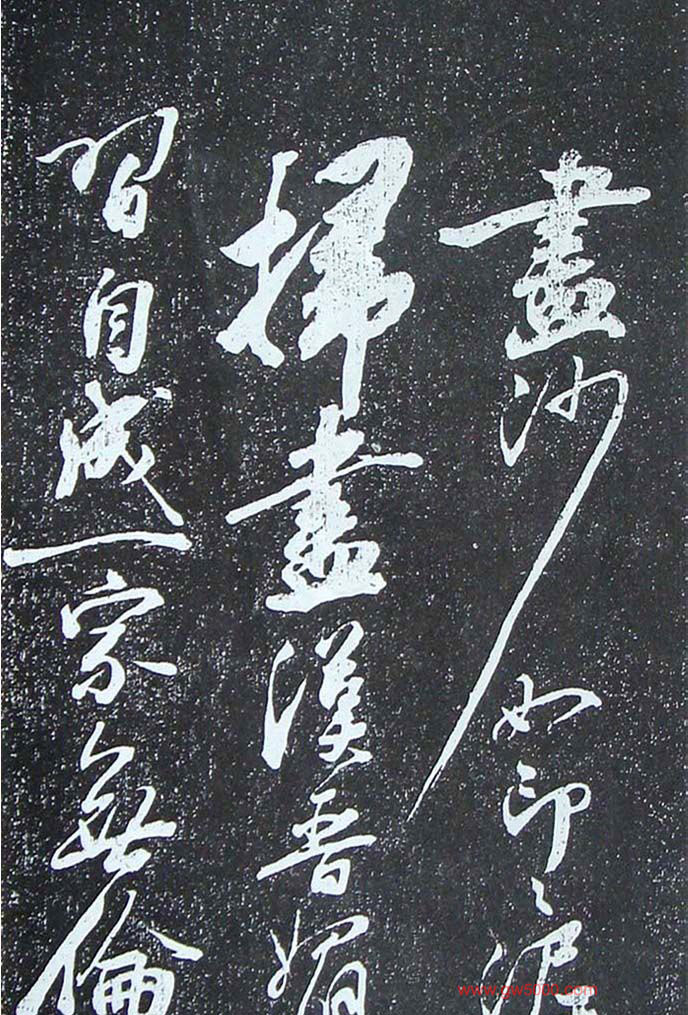 畫沙如印々泥
掃盡漢晉媚
習自成一家無倫
www.gw5000.com